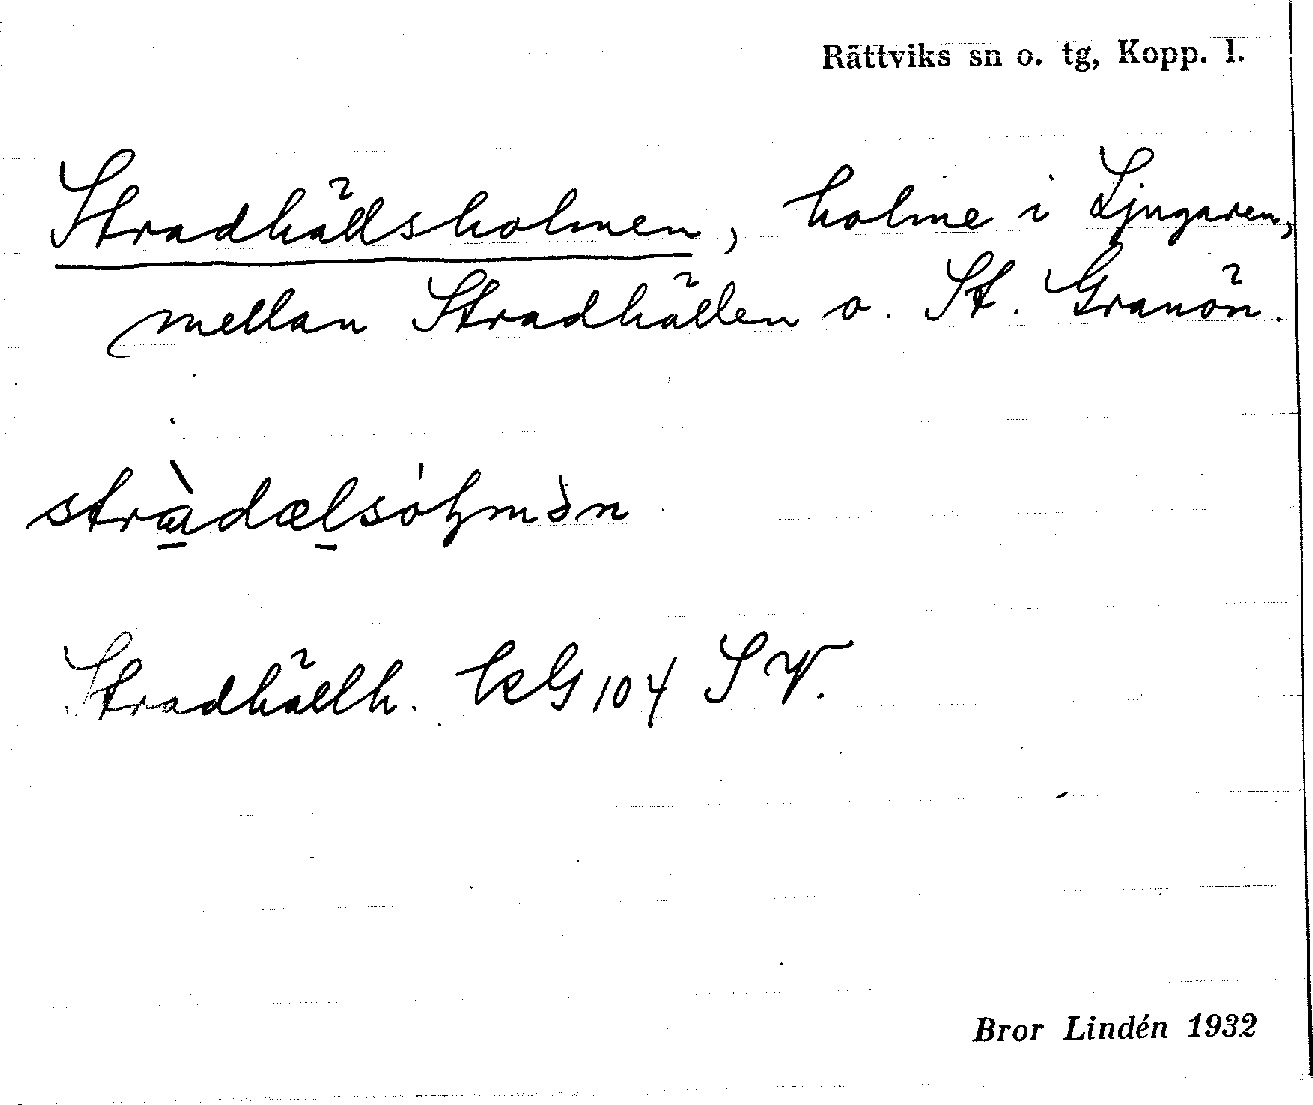 Rättviks sn o. tg, Kopp. l.
Stradhällsholmen, holme i Ljugaren,
mellan Stradhällen o. St. Granön.
Stradhällh. 104 SV.
Bror Lindén 1932